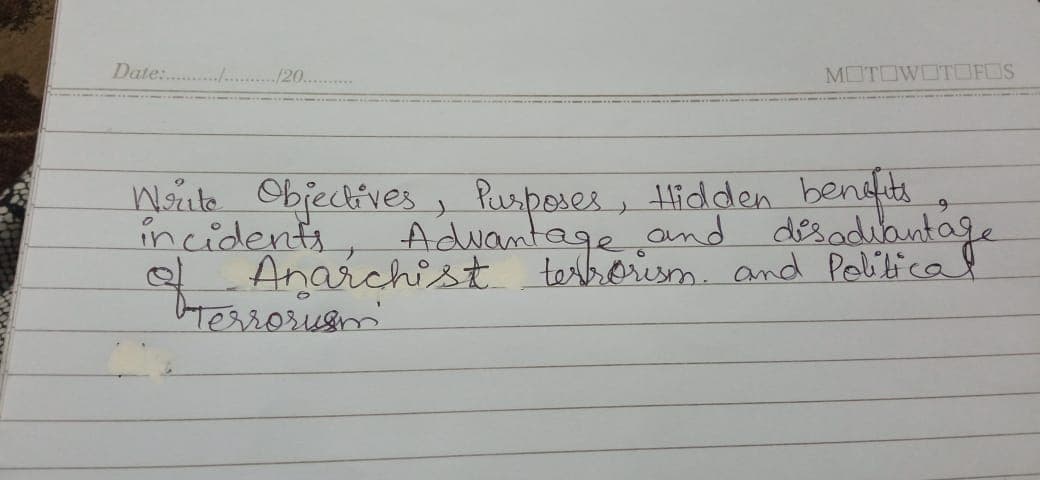 Date:........../........../20..........
M□T□W□T□F□S
Write Objectives, Purposes, Hidden benefits,
incidents, Advantage and disadvantage
of Anarchist terrorism. and Political
Terrorism